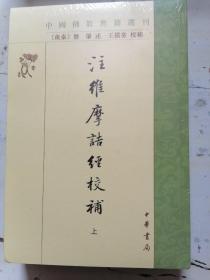 中國佛教典籍選刊
〔後秦〕僧 肇 述 王儒童 校補
注維摩詰經校補
上
中華書局